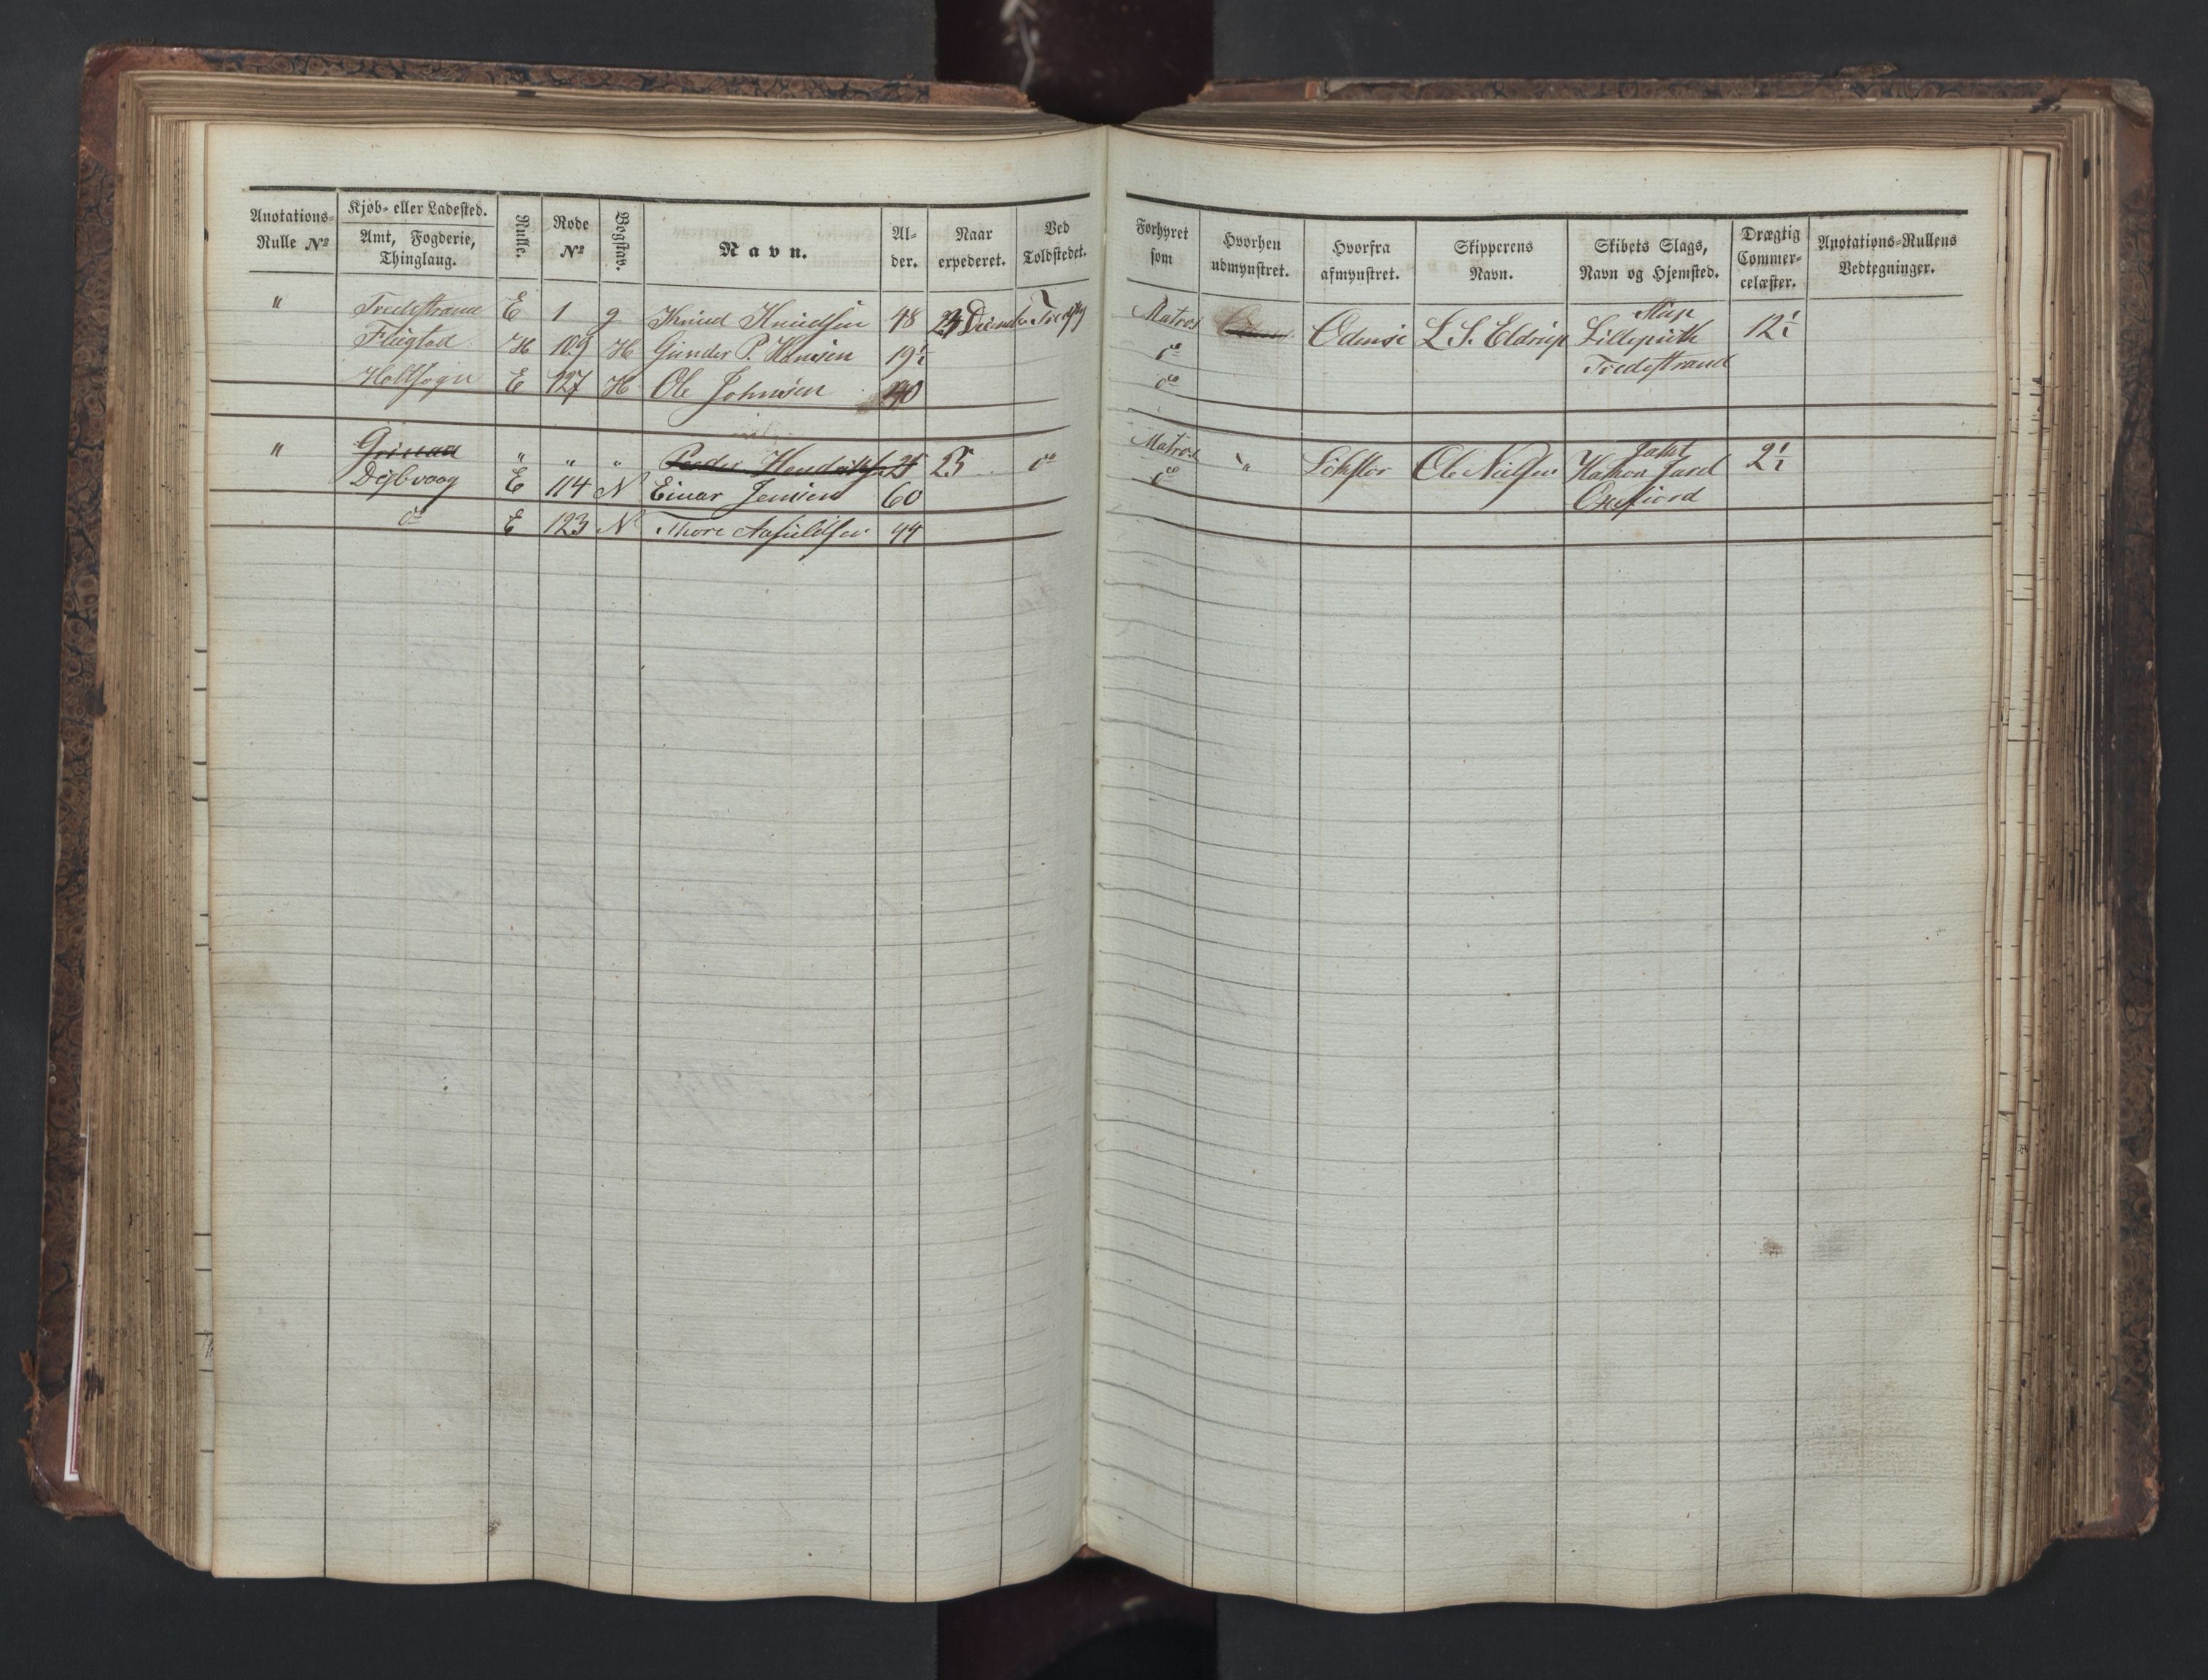 Anotations-Rulle № | Kjøb- eller Ladested. Amt, Fogderie, Thinglaug. | Rulle. | Rode № | Bogstav. | Navn. | Alder. | Naar expederet. | Ved Toldstedet. | Forhyret som | Hvorhen udmynstret. | Hvorfra afmynstret. | Skipperens Navn. | Skibets Slags, Navn og Hjemsted. | Drægtig Commercelæster. | Anotations-Rullens Vedtegninger.
" | Tvedestrand | E | 1 | g | Knud Knudsen | 48 | 24 December | Tvedest | Matros | | Odense | L. S. Eldrup | Slup Lilleputh Tvedestrand | 12½
Flugstad | H | 109 | H | Gunder P. Hansen | 19½ | do
Holtsogn | E | 127 | H | Ole Johnsen | do
" | Grimstad | " | " | " | Peder Hendriksen | 25 | do | Matros | " | Ole Nielsen | Jakt Hakon Jarl Oxefiord | 2½
Dybvaag | E | 114 | N | Einar Jensen | 60 | do
do | E | 123 | N | Thore | 44